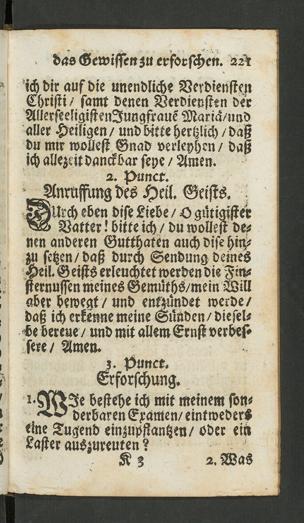 das Gewissen zu erforschen. 221
ich dir auf die unendliche Verdiensten
Christi / samt denen Verdiensten der
Allerseeligisten Jungfrauẽ Mariä / und
aller Heiligen / und bitte hertzlich / daß
du mir wollest Gnad verleyhen / daß
ich allezeit danckbar seye / Amen.
2. Punct.
Anruffung des Heil. Geists.
Durch eben dise Liebe / O gütigister
Vatter! bitte ich / du wollest de-
nen anderen Gutthaten auch dise hin-
zu setzen / daß durch Sendung deines
Heil. Geists erleuchtet werden die Fin-
sternussen meines Gemüths / mein Will
aber bewegt / und entzündet werde /
daß ich erkenne meine Sünden / diesel-
be bereue / und mit allem Ernst verbes-
sere / Amen.
3. Punct.
Erforschung.
1. WJe bestehe ich mit meinem son-
derbaren Examen / eintweders
eine Tugend einzupflantzen / oder ein
Laster auszureuten?
K 3 2. Was